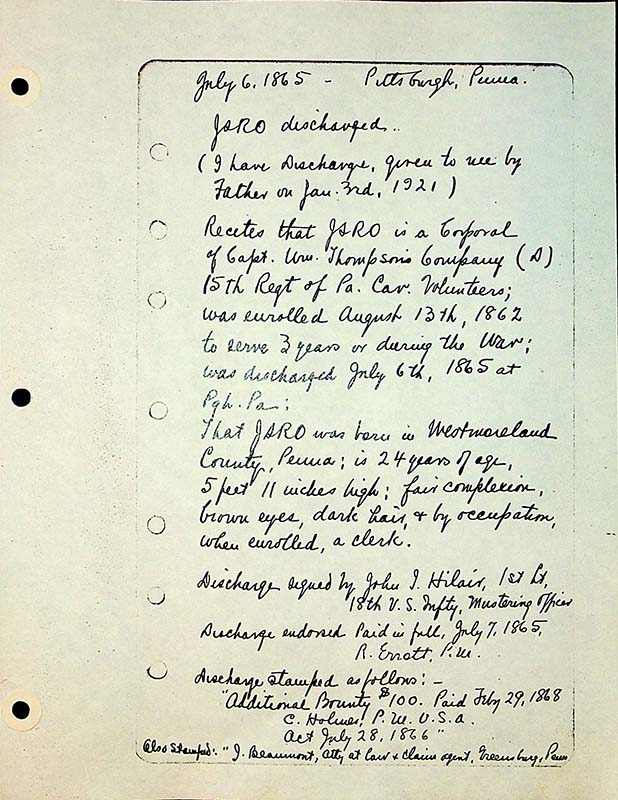 July 6, 1865 - Pittsburgh, Penna.
JSRO discharged..
(I have Discharge, given to me by
Father on Jan. 3rd, 1921)
Recites that JSRO is a Corporal
of Capt. Wm. Thompson's Company (A)
15th Regt of Pa. Cav. Volunteers;
was enrolled August 13th, 1862
to serve 3 years or during the War;
was discharged July 6th, 1865 at
Pgh. Pa;
That JSRO was born in Westmoreland
County, Penna; is 24 years of age,
5 feet 11 inches high; fair complexion,
brown eyes, dark hair, & by occupation,
when enrolled, a clerk.
Discharge signed by John I. Hilair, 1st Lt,
18th U.S. Infty, Mustering Officer
Discharge endorsed Paid in full, July 7, 1865,
R. Errott, P.M.
Discharge stamped as follows: -
"Additional Bounty $100. Paid Feby 29, 1868
C. Holmes, P.M. U.S.A.
Act July 28, 1866"
Also Stamped: "J. Beaumont, atty at law & claim agent, Greensburg, Penn